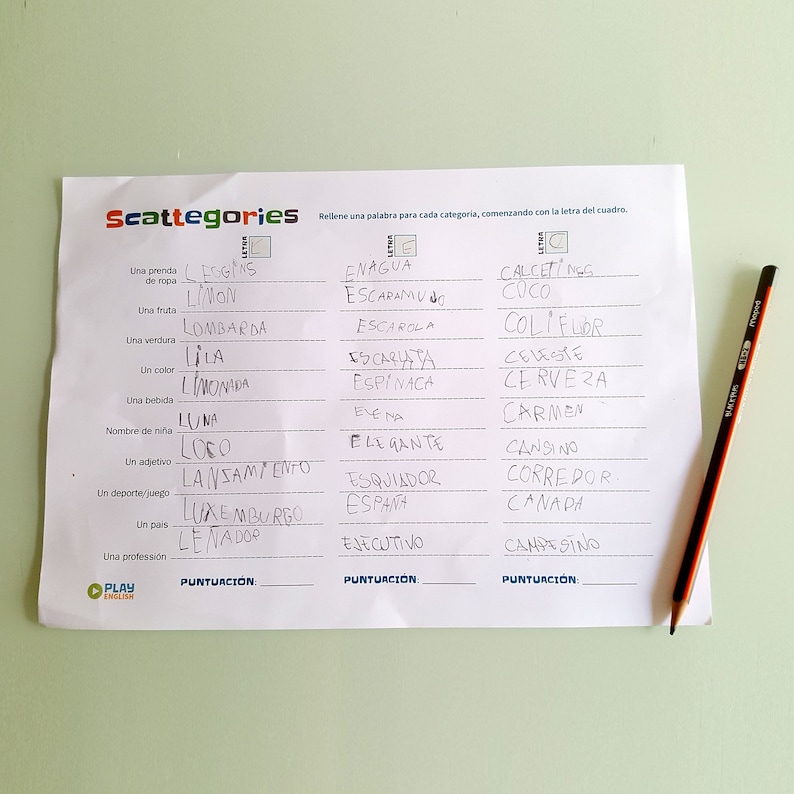 Scattegories Rellene una palabra para cada categoria, comenzando con la letra del cuadro.
LETRA L LETRA E LETRA C
Una prenda de ropa LEGGINS ENAGUA CALCETINES
Una fruta LIMON ESCARAMUJO COCO
Una verdura LOMBARDA ESCAROLA COLIFLOR
Un color LILA ESCARLATA CELESTE
Una bebida LIMONADA ESPINACA CERVEZA
Nombre de niña LUNA ELENA CARMEN
Un adjetivo LOCO ELEGANTE CANSINO
Un deporte/juego LANSAMIENTO ESQUIADOR CORREDOR.
Un pais LUXEMBURGO ESPAÑA CANADA
Una profesión LEÑADOR EJECUTIVO CAMPESINO
PUNTUACIÓN: PUNTUACIÓN: PUNTUACIÓN:
PLAY
ENGLISH
BLACK'PEPS
Maped